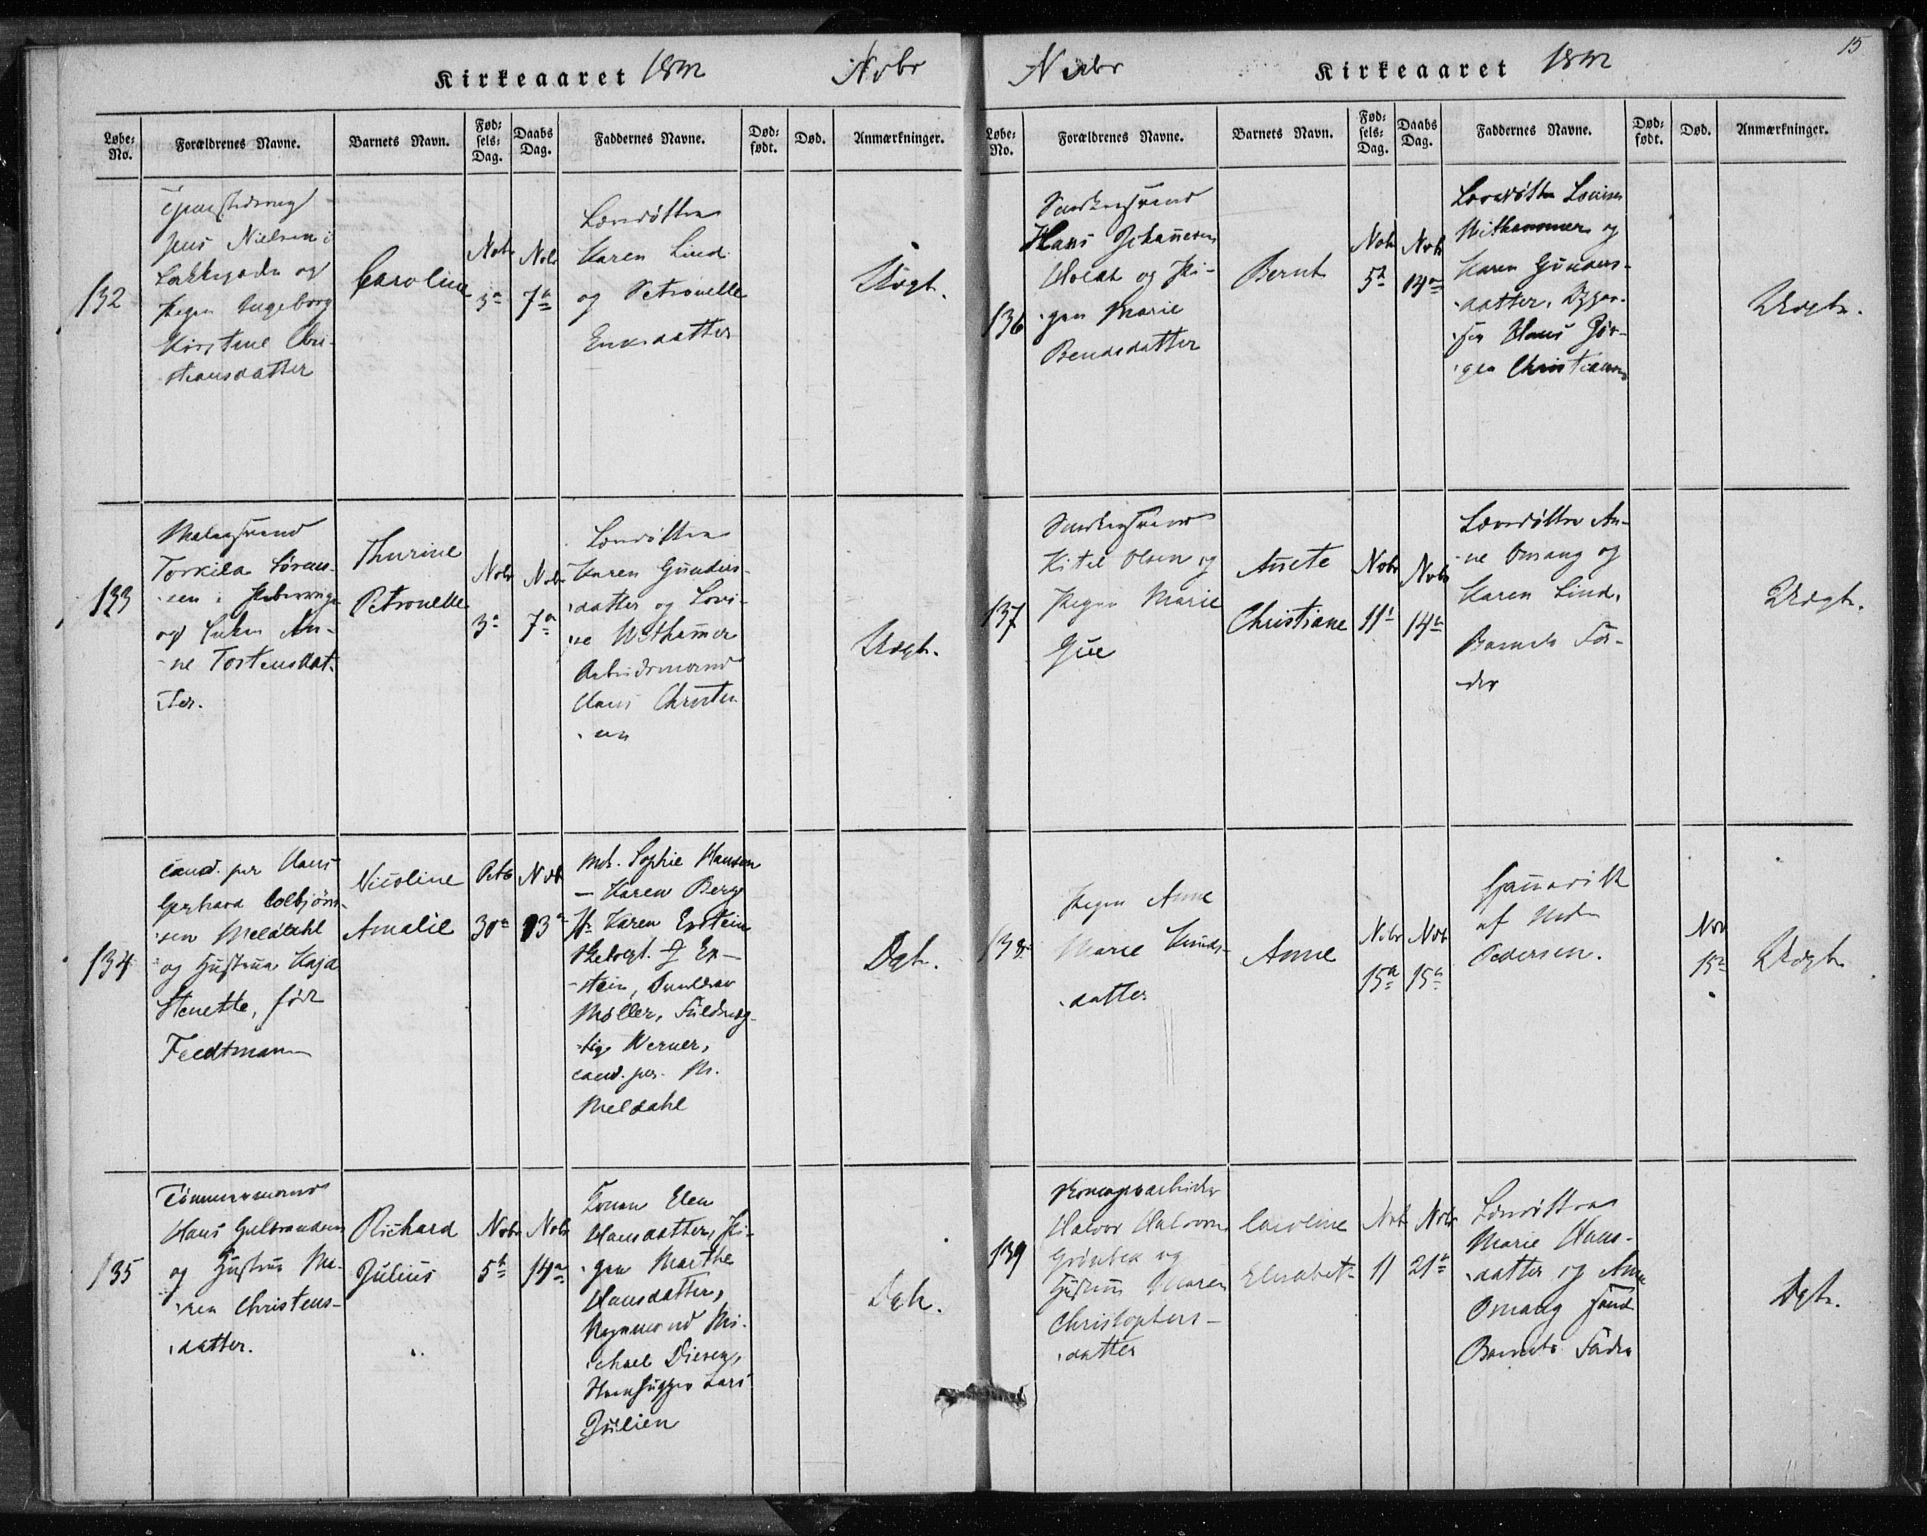 Kirkeaaret 1842 Novbr
Løbe-No. Forældrenes Navne. Barnets Navn. Fødsels-Dag. Daabs Dag. Faddernes Navne. Dødfødt. Død. Anmærkninger.
132
Jens Nielsen i
og
Pigen Ingeborg
Kirstine Chri-
stiansdatter
Caroline
Nobr
3n
Nobr
7n
Karen Lind
og Petronelle
Eriksdatter
Uægt.
133
Malersvend
Torkild Søren-
sen i
og Anne
Tostensdat-
ter.
Thurine
Petronelle
Nobr
3n
Nobr
7n
Karen Gunders-
datter og Lovi-
ne Withammer
Arbeidsmand
Hans Christen-
sen
Uægt.
134
Cand. jur Hans
Gerhard Colbjørn-
sen Meldahl
og Hustrue Kaja
Henette, født
Feedtmann
Nicoline
Amalie
Octb
30n
Nvb
13n
Md. Sophie Hansen
— Karen Berg
Karen Epstein
Ep-
stein,
Møller, Fuldmæg-
tig Werner,
cand. jur. M.
Meldahl
Ægt.
135
Tømmermand
Hans Gulbrandsen
og Hustrue Ma-
ren Christens-
datter.
Richard
Julius
Nobr
5te
Nobr
14n
Konen Elen
Hansdatter, Pi-
gen Marthe
Hansdatter,
Mi-
chael Diesen,
Steenhugger Lars
Julien
Ægt.
Novbr Kirkeaaret 1842 15
Løbe-No. Forældrenes Navne. Barnets Navn. Fødsels-Dag. Daabs Dag. Faddernes Navne. Dødfødt. Død. Anmærkninger.
136
Snedkersvend
Hans Johannesen
og Pi-
gen Marie
Bendsdatter
Bernt
Nobr
5te
Nobr
14n
Lovise
Withammer og
Karen Gunders-
datter,
Hans Jør-
gen Christiansen
Uægt.
137
Snedkersvend
Kitel Olsen og
Pigen Marie
Gue
Anete
Christiane
Nobr
11
Nobr
14n
An-
ne Omang og
Karen Lind,
Barnets Fa-
der
Uægt.
138
Pigen Anne
Marie Knuds-
datter
Anne
Nobr
15n
Nobr
15n
Hjemmedøbt
af
Pedersen.
Nov
15n
Uægt.
139
Halvor Halvorsen
og
Hustrue Maren
Christophers-
datter
Caroline
Elisabet
Nvb
11
Nobr
21n
Marie Hans-
datter og Anne
Omang samt
Barnets Fader
Ægt.